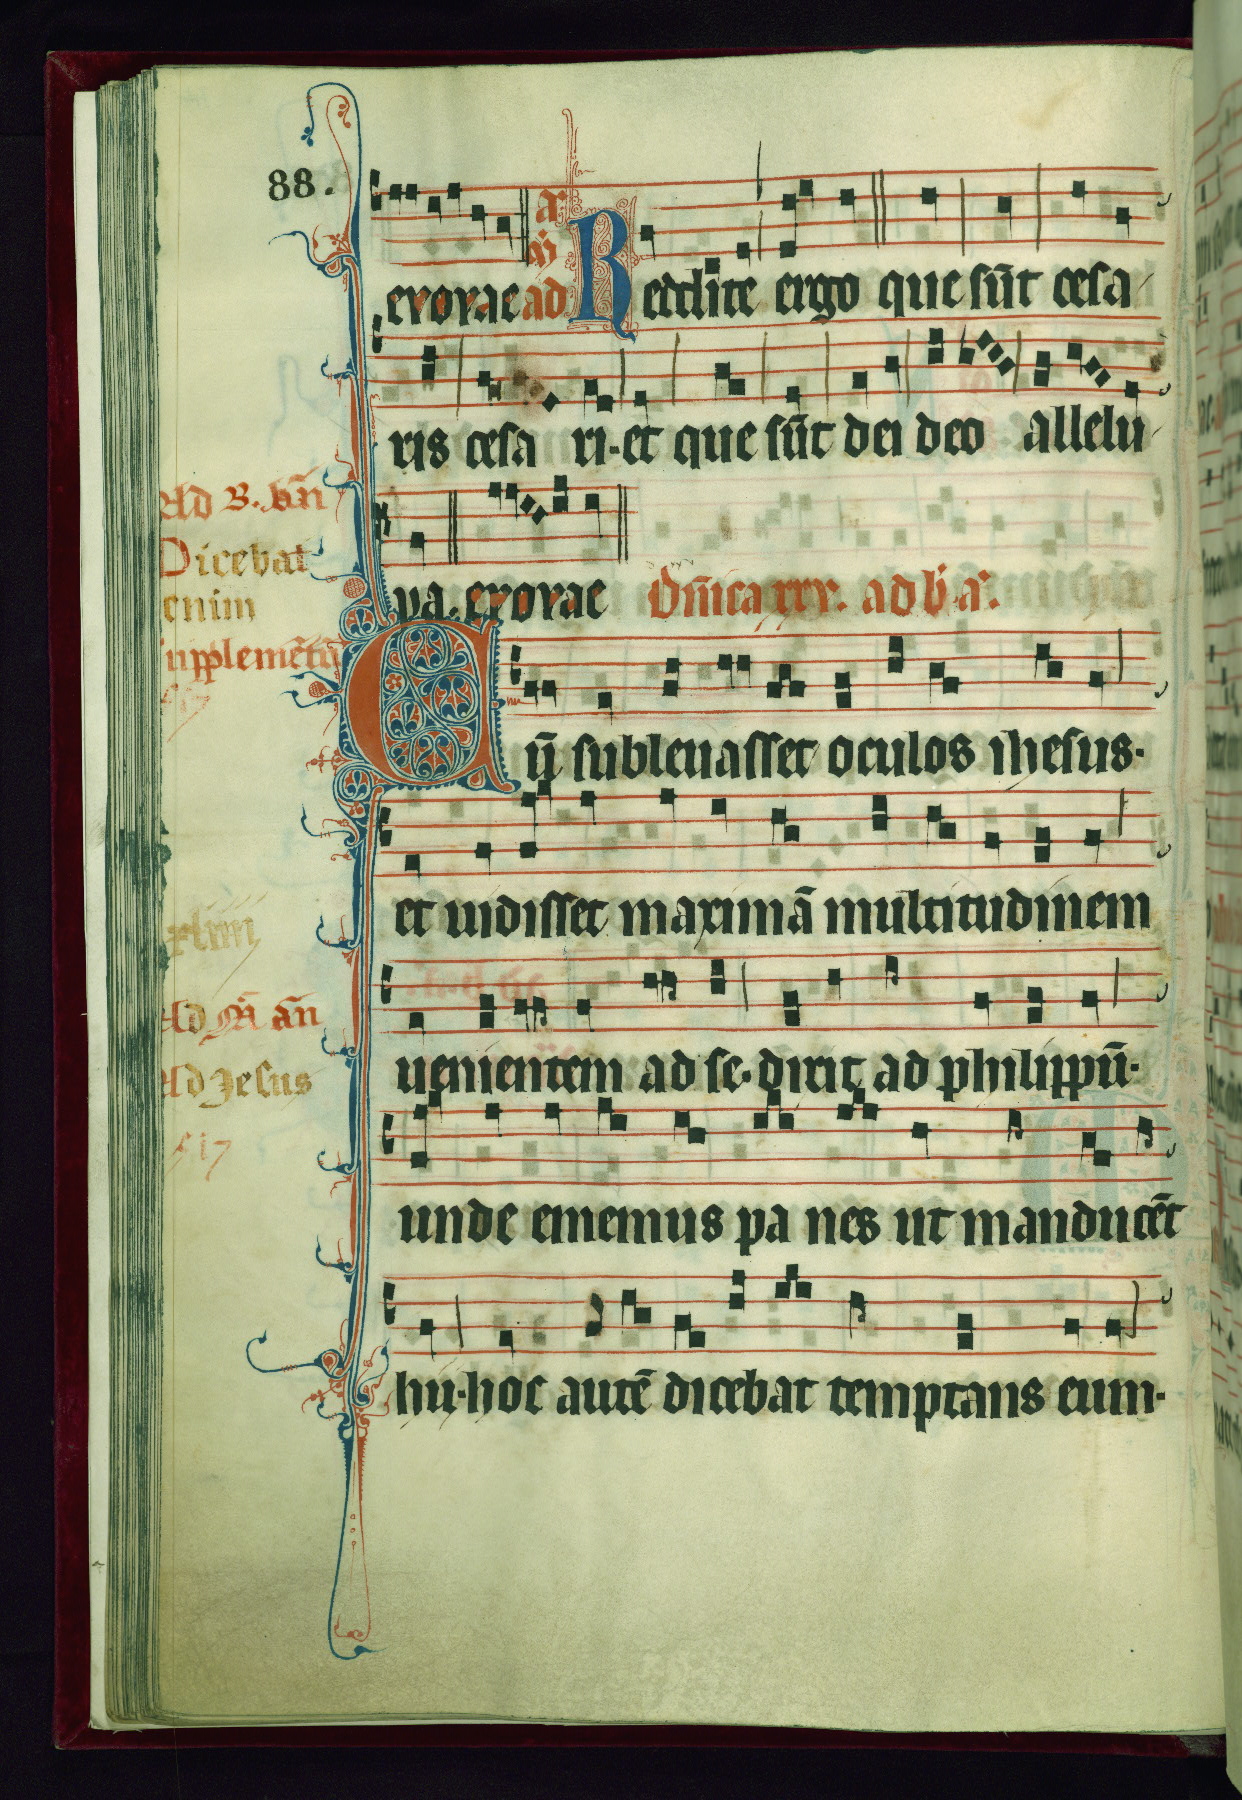 88.
a᷑
m̄
evovae ad Reddite ergo que sūt cesa
ris cesa ri·et que sūt dei deo allelu
ya. evovae Dn̄ica xxv. ad b̄ a᷑.
Cū subleuasset oculos ihesus·
et uidisset maximā multitudinem
uenientem ad se· dixit ad philippū·
unde ememus pa nes ut manducēt
hii·hoc autē dicebat temptans eum·
Ad B. an̄
Dicebat
enim
supplemētū
Ad M̄ an̄
Ad Jesus
517